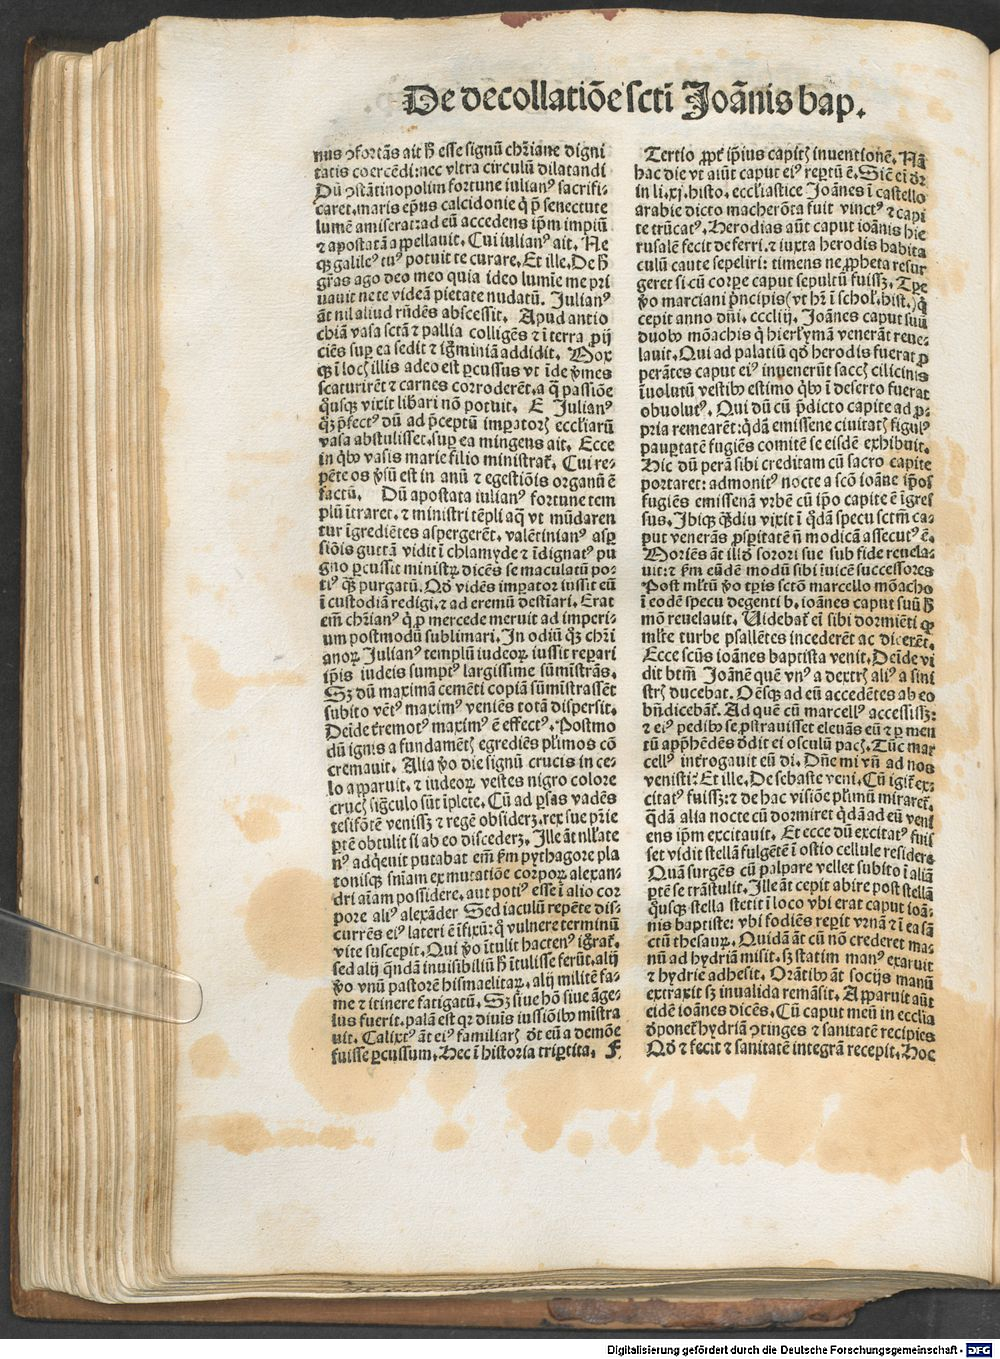 De decollatiõe scti Joãnis bap.
nus ꝯfortãs ait hͦ esse signũ chr̃iane digni
tatis coercẽdi: nec vltra circulũ dilatandi
Dũ ꝯstãtinopolim fortune iulianꝰ sacrifi-
caret. maris ep̃us calcidonie q̃ p̃ senectute
lumẽ amiserat: ad eũ accedens ip̃m impiũ
⁊ apostatã appellauit. Cui iulianꝰ ait. Ne
qꝫ galileꝰ tuꝰ potuit te curare. Et ille. De hͦ
gr̃as ago deo meo quia ideo lumĩe me pri
uauit ne te videã pietate nudatũ. Julianꝰ
ãt nil aliud rñdẽs abscessit. Apud antio
chiã vasa sctã ⁊ pallia colligẽs ⁊ ĩ terra ꝓij
ciẽs suꝑ ea sedit ⁊ ig̃miniã addidit. Mox
qꝫ ĩ locꝭ illis adeo est ꝑcussus vt ĩde ṽmes
scaturirẽt ⁊ carnes corroderẽt. a q̃ passiõe
q̃usqꝫ vixit lib̃ari nõ potuit. E Julianꝰ
qꝫ p̃fectꝰ dũ ad p̃ceptũ imꝑatorꝭ eccl̃iarũ
vasa abstulisset. suꝑ ea mingens ait. Ecce
in qͥbꝰ vasis marie filio ministrat̃. Cui re-
pẽte os ṽsũ est in anũ ⁊ egestiõis organũ ẽ
factũ. Dũ apostata iulianꝰ fortune tem
plũ ĩtraret. ⁊ ministri tẽpli aq̃ vt mũdaren
tur ĩgrediẽtes aspergerẽt. valẽtinianꝰ asꝑ
siõis guttã vidit ĩ chlamyde ⁊ ĩdignatꝰ pu
gno ꝑcussit ministrꝫ dicẽs se maculatũ po-
tiꝰ q̃ꝫ purgatũ. Qd̃ vidẽs imꝑator iussit eũ
ĩ custodiã redigi. ⁊ ad eremũ destĩari. Erat
em̃ chr̃ianꝰ q̃ ꝓ mercede meruit ad imperi-
um postmodũ sublimari. In odiũ qꝫ chr̃i
anoꝝ Julianꝰ templũ iudeoꝝ iussit repari
ip̃is iudeis sumptꝰ largissime sũmistrãs.
Sꝫ dũ maximã cemẽti copiã sũmistrassẽt
subito vẽtꝰ maximꝰ veniẽs totã dispersit.
Deĩde t̃remotꝰ maximꝰ ẽ effectꝰ. Postmo
dũ ignis a fundamẽtꝭ egrediẽs pl̃imos cõ
cremauit. Alia ṽo die signũ crucis in ce-
lo apparuit. ⁊ iudeoꝝ vestes nigro colore
crucꝭ sig̃culo sũt ĩplete. Cũ ad ꝑsas vadẽs
tesifõtẽ venissꝫ ⁊ regẽ obsiderꝫ. rex sue p̃rie
ꝑtẽ obtulit si ab eo discederꝫ. Ille ãt nll̃ate
nꝰ adq̃euit putabat em̃ s̃m pythagore pla
tonisqꝫ sñiam ex mutatiõe corpoꝝ alexan-
dri aĩam possidere. aut potiꝰ esse ĩ alio cor
pore aliꝰ alexãder Sed iaculũ repẽte dis-
currẽs eiꝰ lateri ẽ ĩfixũ: q̃ vulnere terminũ
vite suscepit. Qui ṽo ĩtulit hactenꝰ ig̃rat̃.
sed alij q̃ndã inuisibiliũ hͦ ĩtulisse ferũt. alij
ṽo vnũ pastorẽ hismaelitaꝝ. alij militẽ fa-
me ⁊ itinere fatigatũ. Sꝫ siue hõ siue ãge-
lus fuerit. palã est qꝛ diuis iussiõibꝰ mistra
uit. Calixtꝰ ãt eiꝰ familiarꝭ d̃t eũ a demõe
fuisse ꝑcussum. Hec ĩ historia triꝑtita. F
Tertio ꝓpt̃ ip̃ius capitꝭ inuentionẽ. Nã
hac die vt aiũt caput eiꝰ reꝑtũ ẽ. Siẽ ei dr̃
in li. xj. histo. eccl̃iastice Joãnes ĩ castello
arabie dicto macherõta fuit vinctꝰ ⁊ capi
te trũcatꝰ. Herodias aũt caput ioãnis hie
rusalẽ fecit deferri. ⁊ iuxta herodis habita
culũ caute sepeliri: timens ne ꝓpheta resur
geret si cũ corꝑe caput sepultũ fuissꝫ. Tꝑe
ṽo marciani p̃ncipis (vt hr̃ ĩ schol̃. hist.) q̃
cepit anno dñi. ccclij. Joãnes caput suũ
duobꝰ mõachis q̃ hierl̃ymã venerãt reue-
lauit. Qui ad palatiũ qd̃ herodis fuerat ꝓ
perãtes caput eiꝰ inuenerũt saccꝭ cilicinis
ĩuolutũ vestibꝰ estimo qͥbꝰ ĩ deserto fuerat
obuolutꝰ. Qui dũ cũ p̃dicto capite ad ꝓ-
pria remearẽt: q̃dã emissene ciuitatꝭ figulꝰ
pauꝑtatẽ fugiẽs comitẽ se eisdẽ exhibuit.
Hic dũ perã sibi creditam cũ sacro capite
portaret: admonitꝰ nocte a scõ ioãne ip̃os
fugiẽs emissenã vrbẽ cũ ip̃o capite ẽ ĩgres
sus. Ibiqꝫ q̃diu vixit ĩ q̃dã specu sctm̃ ca-
put venerãs ꝓsꝑitatẽ ñ modicã assecutꝰ ẽ.
Moriẽs ãt illd̃ sorori sue sub fide reuela-
uit: ⁊ s̃m eũdẽ modũ sibi ĩuicẽ successores
Post ml̃tũ ṽo tꝑis sctõ marcello mõacho
ĩ eodẽ specu degenti b. ioãnes caput suũ hͦ
mõ reuelauit. Uidebat̃ ei sibi dormiẽti qꝫ
ml̃te turbe psallẽtes incederẽt ac dicerẽt.
Ecce scũs ioãnes baptista venit. Deĩde vi
dit btm̃ Joãnẽ quẽ vnꝰ a dextrꝭ aliꝰ a sini
strꝭ ducebat. Oẽsqꝫ ad eũ accedẽtes ab eo
bñdicebãt̃. Ad quẽ cũ marcellꝰ accessissꝫ:
⁊ eiꝰ pedibꝰ se ꝓstrauisset eleuãs eũ ⁊ ꝑ men
tũ app̃hẽdẽs d̃dit ei osculũ pacꝭ. Tũc mar
cellꝰ int̃rogauit eũ di. Dñe mi vñ ad nos
venisti? Et ille. De sebaste veni. Cũ igit̃ ex-
citatꝰ fuissꝫ: ⁊ de hac visiõe pl̃imũ mirarer̃.
q̃dã alia nocte cũ dormiret q̃dã ad eũ veni
ens ip̃m excitauit. Et ecce dũ excitatꝰ fuis
set vidit stellã fulgẽtẽ ĩ ostio cellule residere
Quã surgẽs cũ palpare vellet subito ĩ aliã
ꝑtẽ se trãstulit. Ille ãt cepit abire post stellã
q̃usqꝫ stella stetit ĩ loco vbi erat caput ioã-
nis baptiste: vbi fodiẽs reꝑit vrnã ⁊ ĩ ea sã
ctũ thesauꝝ. Quidã ãt cũ nõ crederet ma-
nũ ad hydriã misit. sꝫ statim manꝰ exaruit
⁊ hydrie adhesit. Orãtibꝰ ãt socijs manũ
extraxit sꝫ inualida remãsit. Apparuit aũt
eidẽ ioãnes dicẽs. Cũ caput meũ in eccl̃ia
d̃ponet̃ hydriã ꝯtinges ⁊ sanitatẽ recipies
Qd̃ ⁊ fecit ⁊ sanitatẽ integrã recepit. Hoc
Digitalisierung gefördert durch die Deutsche Forschungsgemeinschaft - DFG